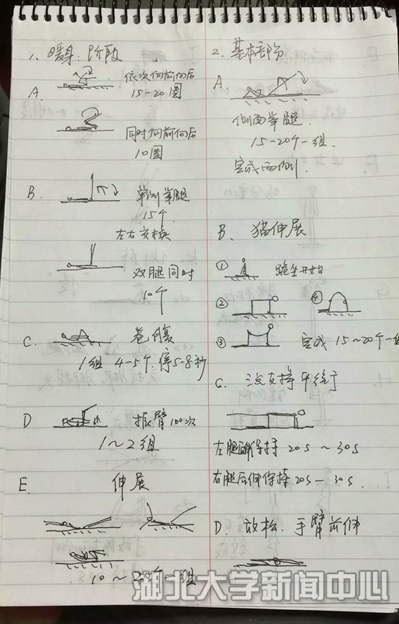 1. 暖身阶段
A
依次向前向后
15-20圈
同时向前向后
10圈
B.
单侧举腿
15个
左右交换
双腿同时
10个
C.
卷腹
1组 4-5个.停5-8秒
D
振臂100次
1~2组
E.
伸展
一组
2. 基本部分
A
侧面举腿
15-20个一组
完成两侧
B. 猫伸展
① 跪坐开始
② ④
③ 完成15~20个一组
C.
20s ~ 30s
右腿后伸保持20s - 30s.
D. 放松.手臂前伸
湖北大学新闻中心